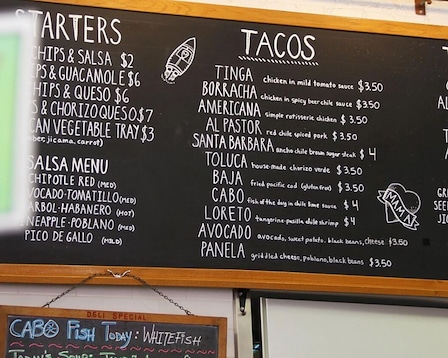 STARTERS
CHIPS & SALSA $2
IPS & GUACAMOLE $6
HIPS & QUESO $6
S & CHORIZO QUESO $7
CAN VEGETABLE TRAY $3
ber, jicama, carrot)
SALSA MENU
CHIPOTLE RED (MED)
AVOCADO-TOMATILLO (MED)
ARBOL-HABANERO (HOT)
INEAPPLE-POBLANO (MED)
PICO DE GALLO (MILD)
TACOS
TINGA chicken in mild tomato sauce $3.50
BORRACHA chicken in spicy beer chile sauce $3.50
AMERICANA simple rotisserie chicken $3.50
AL PASTOR red chile spiced pork $3.50
SANTA BARBARA ancho chile brown sugar steak $4
TOLUCA house-made chorizo verde $3.50
BAJA fried pacific cod (gluten free) $3.50
CABO fish of the day in chile lime sauce $4
LORETO tangerine-pasilla dulce shrimp $4
AVOCADO avocado, sweet potato, black beans, cheese $3.50
PANELA griddled cheese, poblano, black beans $3.50
MAMA
DELI SPECIAL
CABO FISH TODAY: WHITEFISH